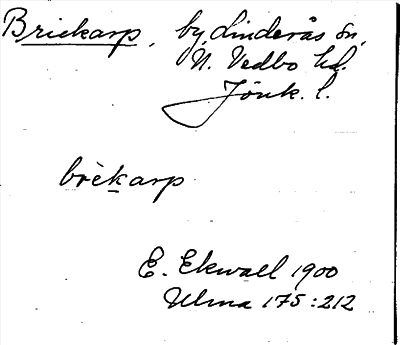 Brickarp, by, Linderås sn,
N. Vedbo hd.
Jönk. l.
brèkarp
E. Ekwall 1900
Ulma 175:212